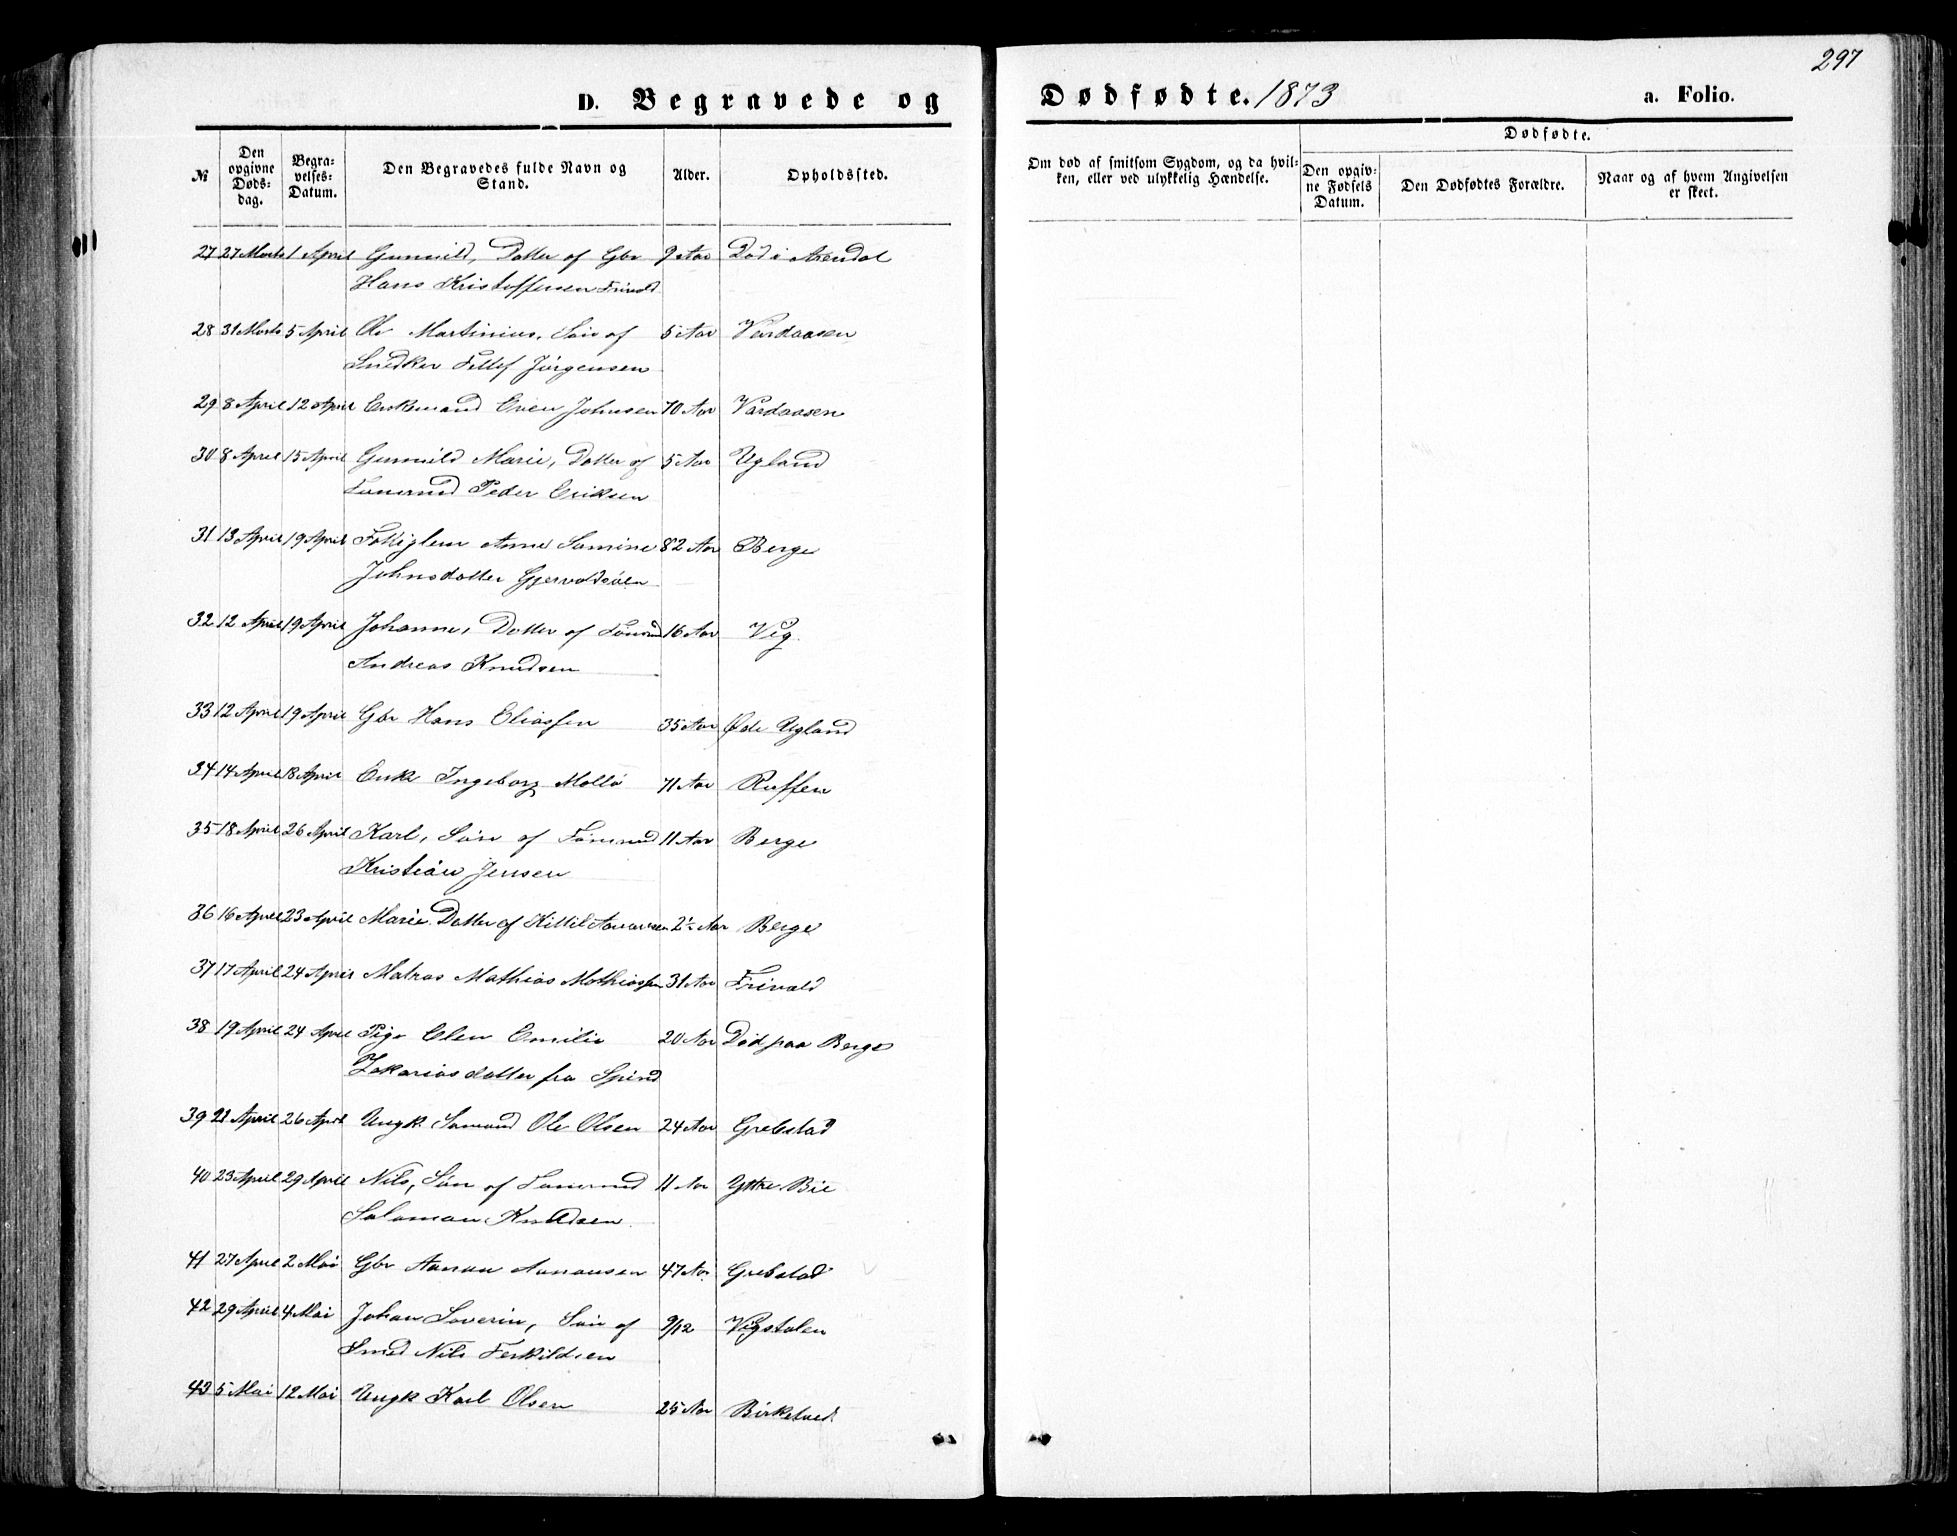 297
D. Begravede og Dødfødte. 1873 a. Folio.
№
Den opgivne Døds-dag.
Begra-velses-Datum.
Den Begravedes fulde Navn og Stand.
Alder.
Opholdssted.
Om død af smitsom Sygdom, og da hvil-
ken, eller ved ulykkelig Hændelse.
Dødfødte.
Den opgiv-ne Fødsels Datum.
Den Dødfødtes Forældre.
Naar og af hvem Angivelsen er skeet.
27 27 Marts 1 April Gunnild, Datter af Gbr 9 Aar Død i Arendal
Hans Kristoffersen Frivold
28 31 Marts 5 April Ole Martinius, Søn af 5 Aar Vardaasen
Snedker Tellef Jörgensen
29 8 April 12 April Enkemand Even Johnsen 70 Aar Vardaasen
30 8 April 15 April Gunnild Marie, Datter af 5 Aar Ugland
Peder Eriksen
31 13 April 19 April Anne 82 Aar Berge
Johnsdatter
32 12 April 19 April Johanne, Datter af 16 Aar Vig.
Andreas Knudsen
33 12 April 19 April Gbr Hans Eliassen 35 Aar Øde Ugland
34 14 April 18 April Enke Ingeborg Mollö 71 Aar
35 18 April 26 April Karl, Søn af 11 Aar Berge
Kristian Jensen
36 16 April 23 April Marie Datter af Kittil Aanansen 2½ Aar Berge
37 17 April 24 April Matros Mathias Mathiassen 31 Aar Frivold
38 19 April 24 April Pige Elen Emilie 20 Aar Død paa Berge
Zakariasdatter fra Spind
39 21 April 26 April Ungk. Sømand Ole Olsen 24 Aar Grebstad
40 23 April 29 April Nils, Søn af 11 Aar Ytre Bie
Salamon Knudsen
41 27 April 2 Mai Gbr Aanon Aanonsen 47 Aar Grebstad
42 29 April 4 Mai Johan Severin, Søn af 9/12 Vigstølen
Smed Nils Terkildsen
43 5 Mai 12 Mai Ungk Karl Olsen 25 Aar Birketvedt